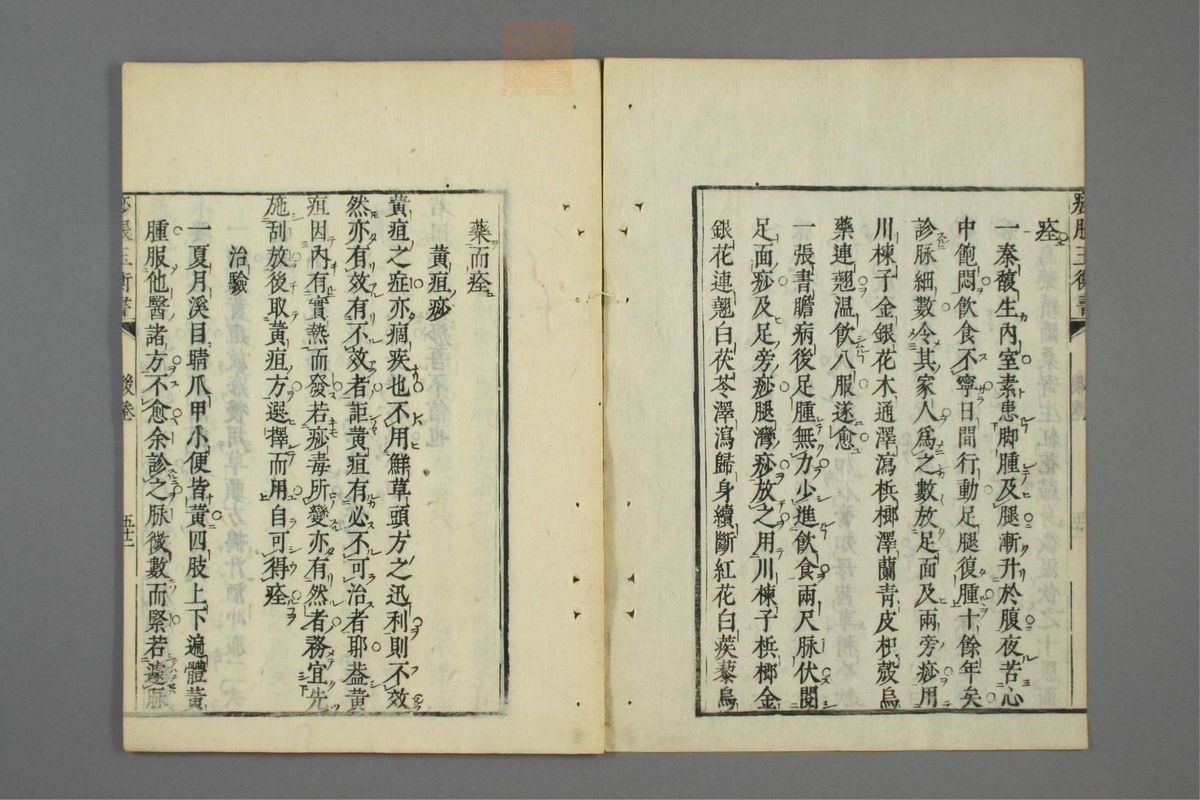 痊
一秦馥生內室素患脚腫及腿漸升於腹夜苦心
中飽悶飲食不寧日間行動足腿復腫十餘年矣
診脉細數令其家人爲之數放足面及兩旁痧用
川楝子金銀花木通澤瀉梹榔澤蘭青皮枳殼烏
藥連翹温飲八服遂愈
一張書瞻病後足腫無力少進飲食兩尺脉伏閱
足面痧及足旁痧腿灣痧放之用川楝子梹榔金
銀花連翹白茯苓澤瀉歸身續斷紅花白蒺藜烏
藥而痊
黃疸痧
黃疸之症亦痼疾也不用鮮草頭方之迅利則不效
然亦有效有不效者詎黃疸有必不可治者耶葢黃
疸因內有實熱而發若痧毒所變亦有然者務宜先
施刮放後取黃疸方選擇而用自可得痊
治驗
一夏月溪目睛爪甲小便皆黃四肢上下遍體黃
腫服他醫諸方不愈余診之脉微數而緊若遽脉
後卷
五十二